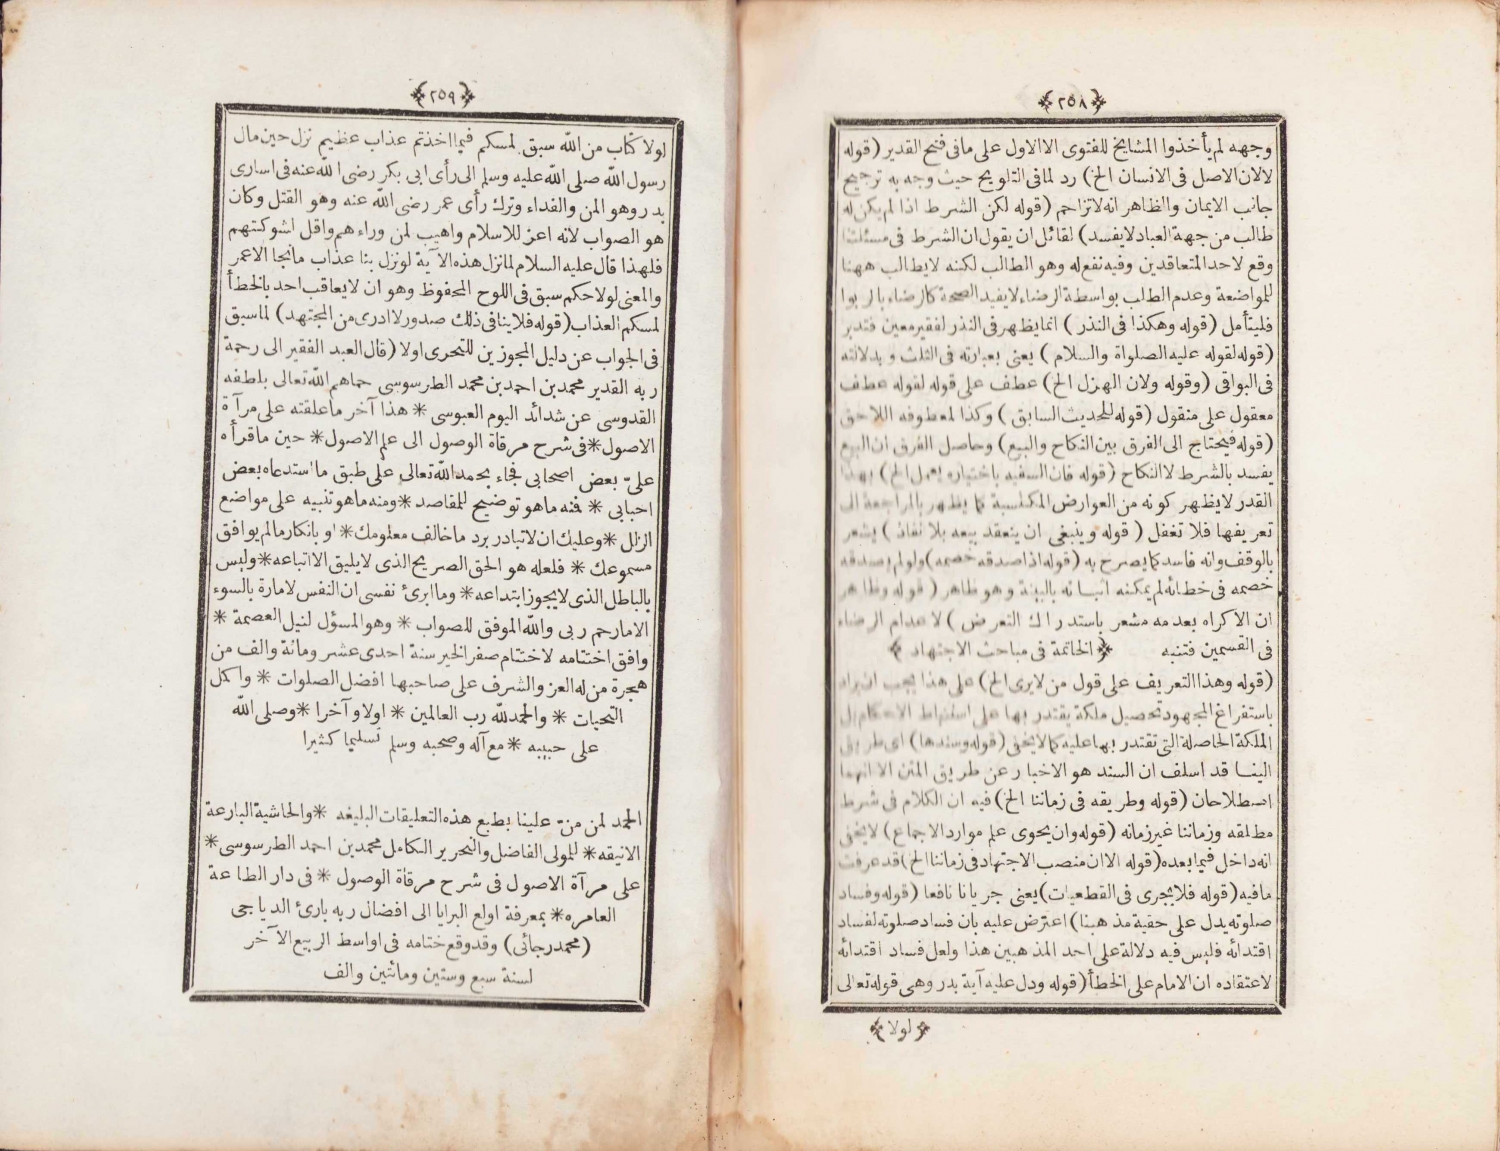 ﴿٢٥٨﴾
وجهه لم يأخذوا المشايخ للفتوى الا الاول على ما فى فتح القدير (قوله
لالان الاصل فى الانسان الخ) رد لما فى التلويح حيث وجه به ترجيح
جانب الايمان والظاهر انه لا تزاحم (قوله لكن الشرط اذا لم يكن له
طالب من جهة العباد لا يفسد) لقائل ان يقول ان الشرط فى مسئلتنا
وقع لاحد المتعاقدين وفيه نفع له وهو الطالب لكنه لا يطالب ههنا
للمواضعة وعدم الطلب بواسطة الرضاء لا يفيد الصحة كالرضاء بالربوا
فليتأمل (قوله وهكذا فى النذر) انما يظهر فى النذر لفقير معين فتدبر
(قوله لقوله عليه الصلواة والسلام) يعنى بعبارته فى الثلث و بدلالته
فى البواقى (وقوله ولان الهزل الخ) عطف على قوله لقوله عطف
معقول على منقول (قوله للحديث السابق) وكذا لمعطوفه اللاحق
(قوله فيحتاج الى الفرق بين النكاح والبيع) وحاصل الفرق ان البيع
يفسد بالشرط لا النكاح (قوله فان السفيه باختياره يعمل الخ) بهذا
القدر لا يظهر كونه من العوارض المكتسبة كما يظهر بالمراجعة الى
تعريفها فلا تغفل (قوله وينبغى ان ينعقد بيعه بلا نفاذ) يشعر
بالوقف وانه فاسد كما يصرح به (قوله اذا صدقه خصمه) ولو لم يصدقه
خصمه فى خطائه لم يمكنه اثباته بالبينة وهو ظاهر (قوله وظاهر
ان الاكراه بعدمه مشعر باستدراك التعرض) لانعدام الرضاء
فى القسمين فتنبه ﴿الخاتمة فى مباحث الاجتهاد﴾
(قوله وهذا التعريف على قول من لا يرى الخ) على هذا يجب ان يراد
باستفراغ المجهود تحصيل ملكة يقتدر بها على استنباط الاحكام بل
الملكة الحاصلة التى تقتدر بها عليه كما لا يخفى (قوله وسندها) اى طريق
الينا قد اسلف ان السند هو الاخبار عن طريق المتن الا انهما
اصطلاحان (قوله وطريقه فى زماننا الخ) فيه ان الكلام فى شرط
مطلقه وزماننا غير زمانه (قوله وان يحوى علم موارد الاجماع) لا يخفى
انه داخل فيما بعده (قوله الا ان منصب الاجتهاد فى زماننا الخ) قد عرفت
مافيه (قوله فلا يجرى فى القطعيات) يعنى جريانا نافعا (قوله وفساد
صلوته يدل على حقية مذهبنا) اعترض عليه بان فساد صلوته لفساد
اقتدائه فليس فيه دلالة على احد المذهبين هذا ولعل فساد اقتدائه
لاعتقاده ان الامام على الخطأ (قوله ودل عليه آية بدر وهى قوله تعالى
﴿لولا﴾
﴿٢٥٩﴾
لولا كتاب من الله سبق لمسكم فيما اخذتم عذاب عظيم نزل حين مال
رسول الله صلى الله عليه وسلم الى رأى ابى بكر رضى الله عنه فى اسارى
بدر وهو المن والفداء وترك رأى عمر رضى الله عنه وهو القتل وكان
هو الصواب لانه اعز للاسلام واهيب لمن وراءهم واقل لشوكتهم
فلهذا قال عليه السلام لما نزل هذه الآية لو نزل بنا عذاب ما نجا الا عمر
والمعنى لولا حكم سبق فى اللوح المحفوظ وهو ان لا يعاقب احد بالخطأ
لمسكم العذاب (قوله فلا ينافى ذلك صدور لا ادرى من المجتهد) لما سبق
فى الجواب عن دليل المجوزين للتجزى اولا (قال العبد الفقير الى رحمة
ربه القدير محمد بن احمد بن محمد الطرسوسى حماهم الله تعالى بلطفه
القدوسى عن شدائد اليوم العبوسى * هذا آخر ما علقته على مرآة
الاصول * فى شرح مرقاة الوصول الى علم الاصول * حين ما قرأه
علىّ بعض اصحابى فجاء بحمد الله تعالى على طبق ما استدعاه بعض
احبابى * فمنه ما هو توضيح للمقاصد * ومنه ما هو تنبيه على مواضع
الزلل * وعليك ان لا تبادر برد ما خالف معلومك * او بانكار مالم يوافق
مسموعك * فلعله هو الحق الصريح الذى لا يليق الا اتباعه * وليس
بالباطل الذى لا يجوز ابتداعه * وما ابرئ نفسى ان النفس لامارة بالسوء
الا مارحم ربى والله الموفق للصواب * وهو المسؤل لنيل العصمة *
وافق اختتامه لاختتام صفر الخير سنة احدى عشر ومائة والف من
هجرة من له العز والشرف على صاحبها افضل الصلوات * واكمل
التحيات * والحمد لله رب العالمين * اولا وآخرا * وصلى الله
على حبيبه * مع آله وصحبه وسلم تسليما كثيرا
الحمد لمن منّ علينا بطبع هذه التعليقات البليغه * والحاشية البارعة
الانيقه * للمولى الفاضل والنحرير الكامل محمد بن احمد الطرسوسى *
على مرآة الاصول فى شرح مرقاة الوصول * فى دار الطاعة
العامره * بمعرفة اولع البرايا الى افضال ربه بارئ الدياجى
(محمد رجائى) وقد وقع ختامه فى اواسط الربيع الآخر
لسنة سبع وستين ومائتين والف